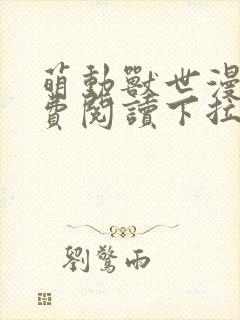 萌動獸世漫
費閱讀下拉
劉驚雨